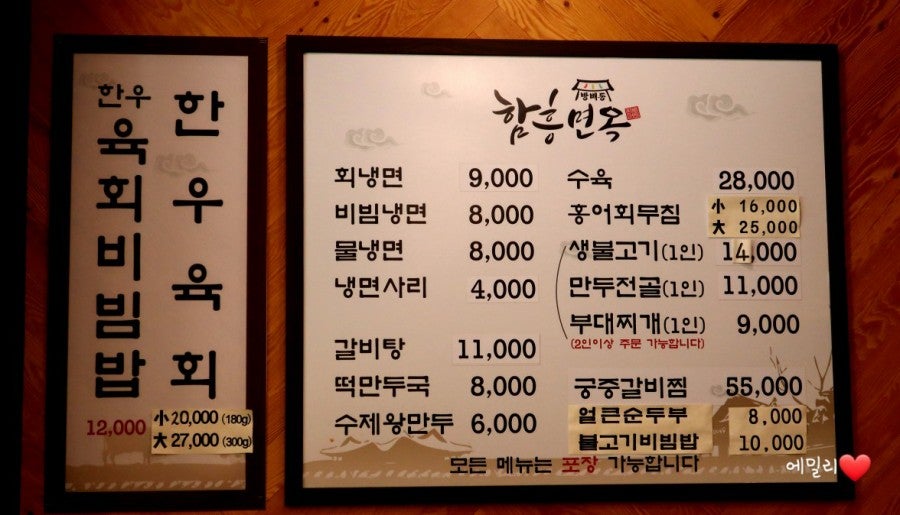 한우육회
소 20,000 (180g)
大 27,000 (300g)
한우
육회비빔밥
12,000
방배동
함흥면옥
회냉면 9,000
비빔냉면 8,000
물냉면 8,000
냉면사리 4,000
갈비탕 11,000
떡만두국 8,000
수제왕만두 6,000
수육 28,000
홍어회무침 小 16,000
大 25,000
생불고기(1인) 14,000
만두전골(1인) 11,000
부대찌개(1인) 9,000
(2인이상 주문 가능합니다)
궁중갈비찜 55,000
얼큰순두부 8,000
불고기비빔밥 10,000
모든 메뉴는 포장 가능합니다
에밀리❤